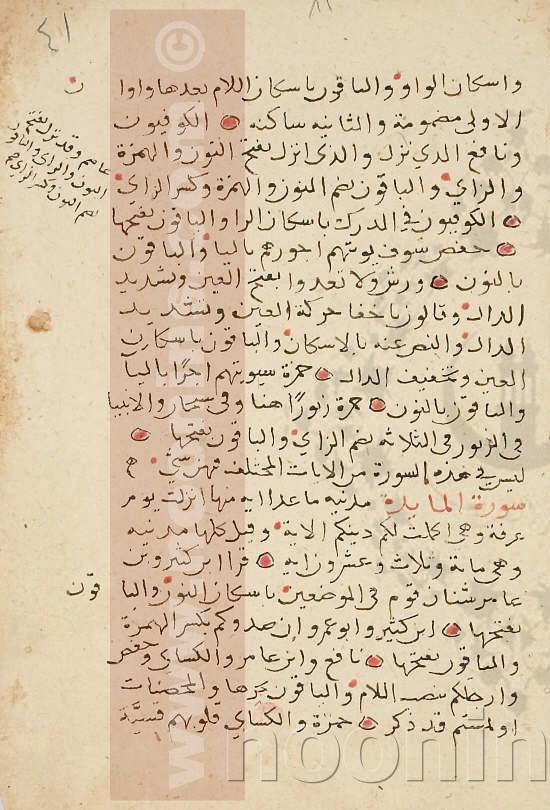 ٤١
واسكان الواو والباقون باسكان اللام بعدها واوان
الاولى مضمومة والثانيه ساكنه الكوفيون
ونافع الذي نزل والذى انزل بفتح النون والهمزة
والزاي والباقون بضم النون والهمزة وكسر الزاي
الكوفيون في الدرك باسكان الرا والباقون بفتحها
حفص سوف يوتيهم اجورهم باليا والباقون
بالنون ورش ولا تعدوا بفتح العين وتشديد
الدال وقالون باخفا حركة العين وتشديد
الدال والنص عنه بالاسكان والباقون باسكان
العين وتخفيف الدال حمزة سيوتيهم اجرًا باليآ
والباقون بالنون حمزة زبورًا هنا وفى سبحان والانبيا
في الزبور فى الثلاثه بضم الزاي والباقون بفتحها
ليس في هذه السورة من الايات المختلف فيهن شي
سورة المايدة مدنيه ما عدا ايه منها انزلت يوم
عرفة وهى اكملت لكم دينكم الاية وقيل كلها مدنيه
وهى ماىة وثلاث وعشرون ايه قرا ابن كثير وابن
عامر شنان قوم فى الموضعين باسكان النون والباقون
بفتحها ابن كثير وابو عمرو ان صدوكم بكسر الهمزة
والباقون بفتحها نافع وابن عامر والكساي وحفص
وارجلكم بنصب اللام والباقون بجرها والمحصنات
او لمستم قد ذكر حمزة والكساي قلوبهم قسيّة
عاصم وقد نزل بفتح
النون والزاى والباقون
بضم النون وكسر الزاى
www.noonin.com
noonin